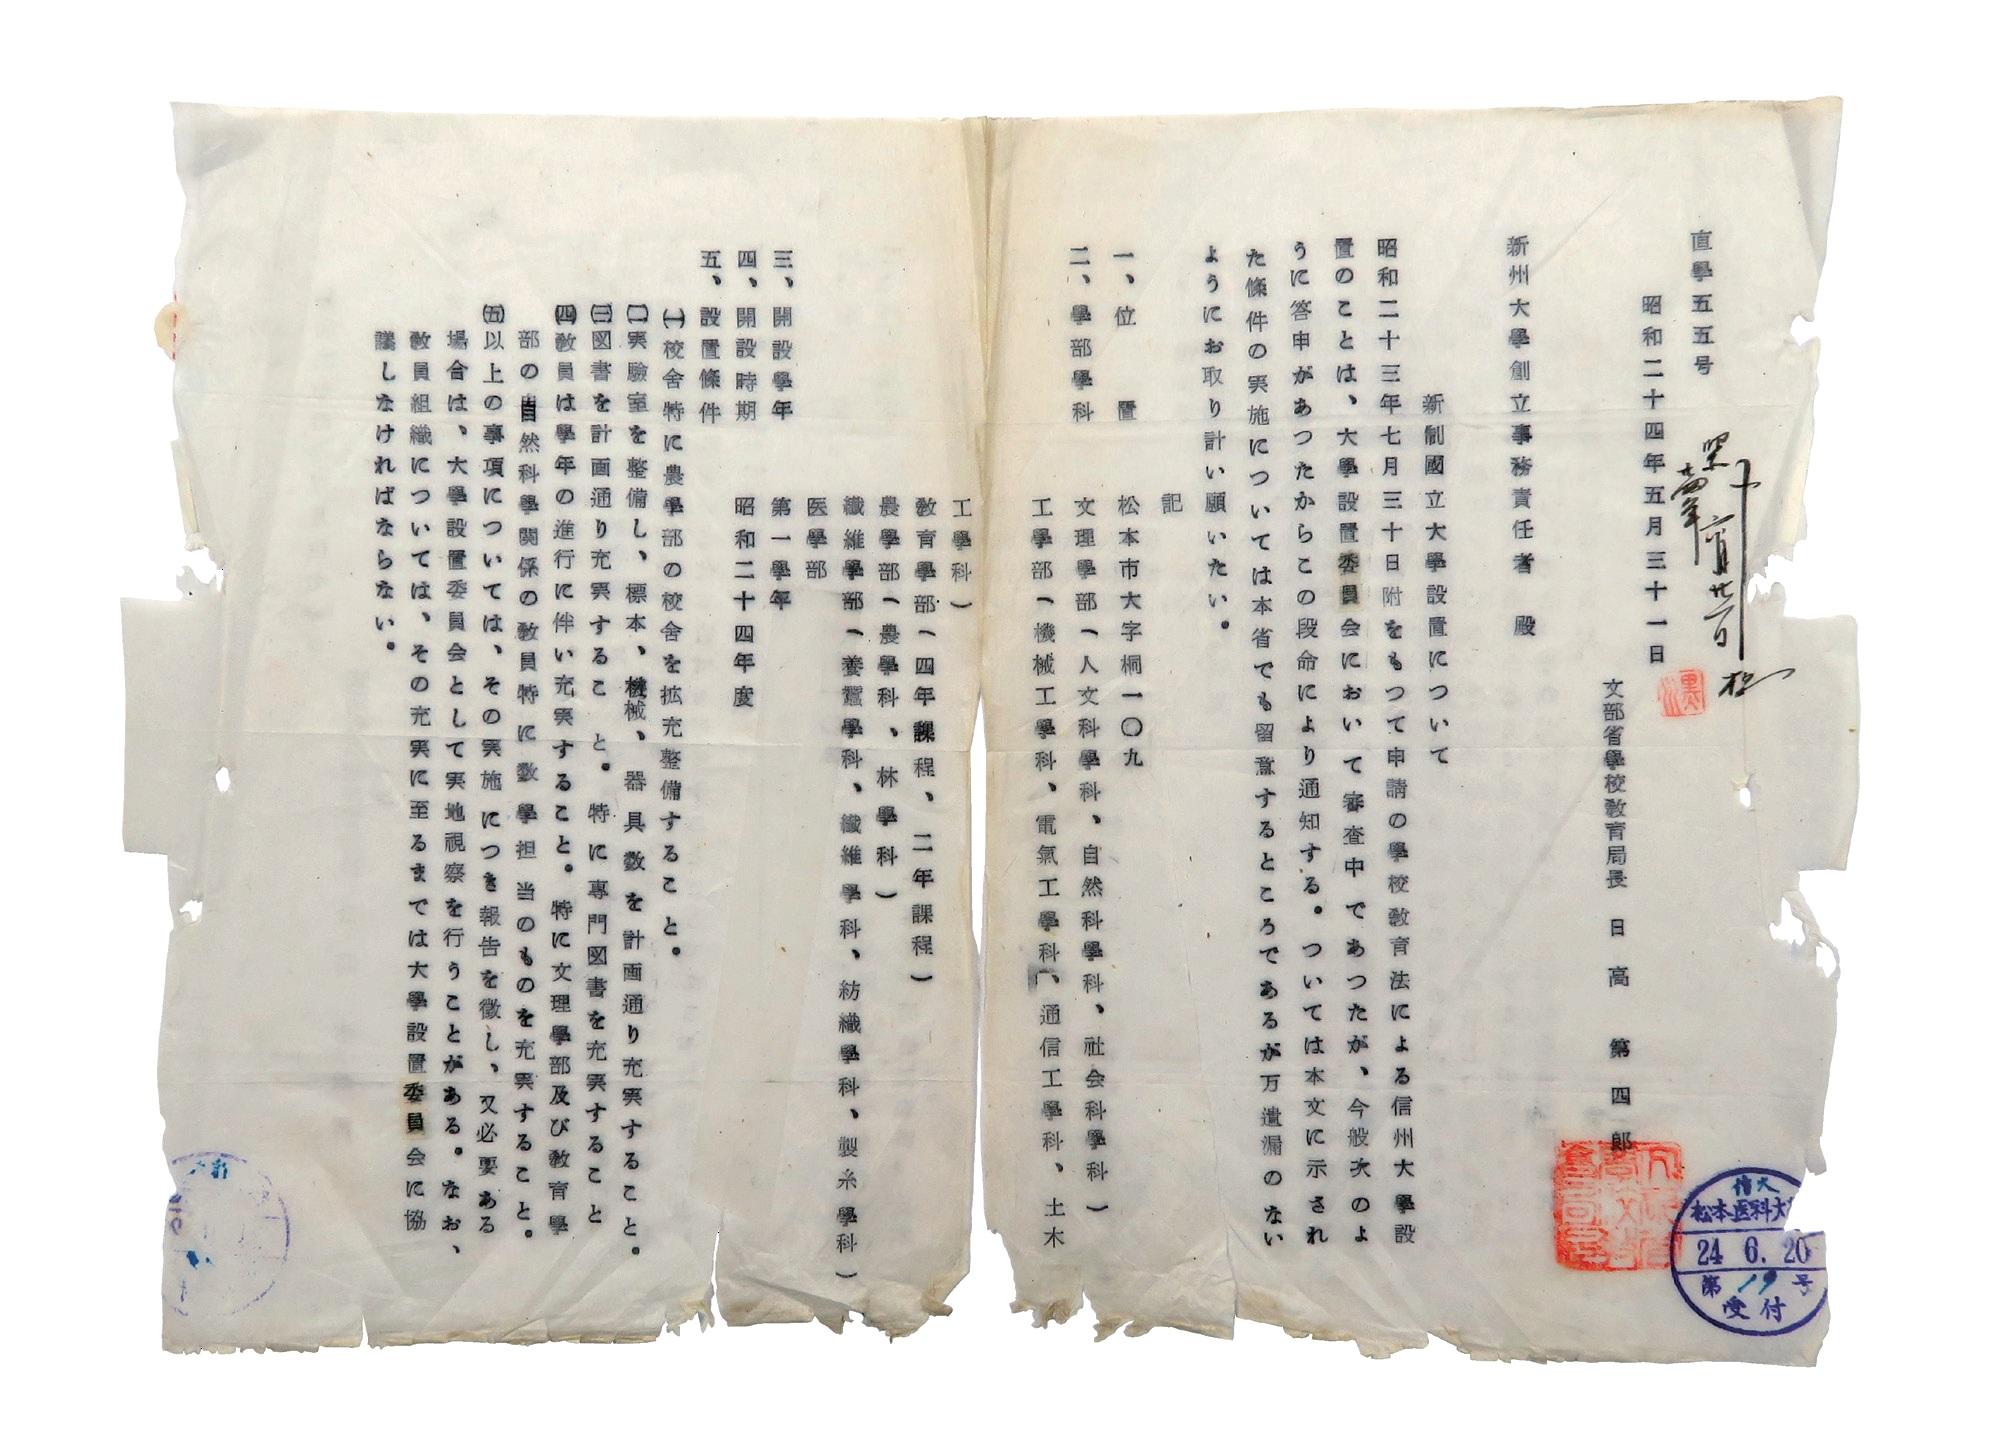 直學五五号
昭和二十四年五月三十一日
文部省學校教育局長 日高 第四郎
新州大學創立事務責任者 殿
新制國立大學設置について
昭和二十三年七月三十日附をもつて申請の學校教育法による信州大學設
置のことは、大學設置委員会において審査中であつたが、今般次のよ
うに答申があつたからこの段命により通知する。ついては本文に示され
た條件の実施については本省でも留意するところであるが万遺漏のない
ようにお取り計い願いたい。
記
一、位 置 松本市大字桐一〇九
二、學部學科 文理學部(人文科學科、自然科學科、社会科學科)
工學部(機械工學科、電氣工學科、通信工學科、土木
工學科)
教育學部(四年課程、二年課程)
農學部(農學科、林學科)
纖維學部(養蠶學科、纖維學科、紡織學科、製糸學科)
医學部
三、開設學年 第一學年
四、開設時期 昭和二十四年度
五、設置條件
㈠校舎特に農學部の校舎を拡充整備すること。
㈡実驗室を整備し、標本、機械、器具数を計画通り充実すること。
㈢図書を計画通り充実すること。特に專門図書を充実すること
㈣教員は學年の進行に伴い充実すること。特に文理學部及び教育學
部の自然科學關係の教員特に数學担当のものを充実すること。
㈤以上の事項については、その実施につき報告を徴し、又必要ある
場合は、大學設置委員会として実地視察を行うことがある。なお、
教員組織については、その充実に至るまでは大學設置委員会に協
議しなければならない。
信大
松本医科大
24 6. 20
第 19 号
受付